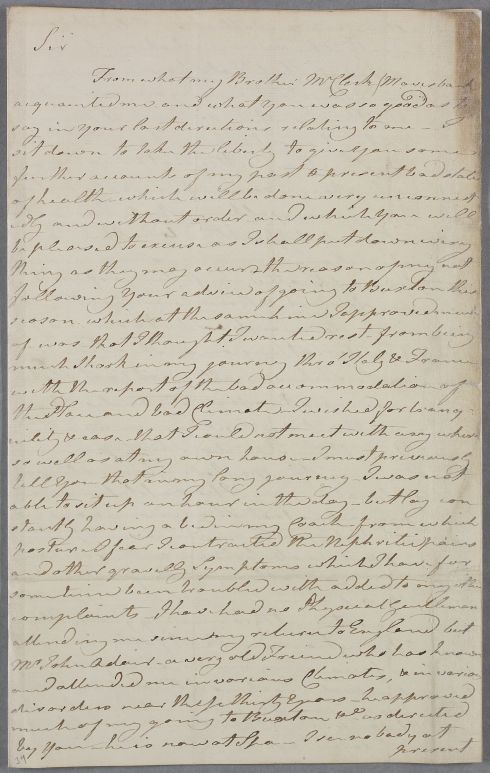 Sir
From what my Brother Mr Clerk (Mavisbank
acquainted me and what you was so good as to
say in your last directions relating to me – I
sit down to take the liberty to give you some
further accounts of my past & present bad state
of health – which will be done very unconnect
edly and without order and which you will
be pleased to excuse as I shall put down every
thing as they may occur – the reason of my not
following your advice of going to Buxton this
season which at the same time I approved much
of was that I thought I wanted rest – from being
much shook in my journey thro' Italy & France
with the report of the bad accommodation of
the Place and bad Climate I wished for tranq-
uility & ease that I could not meet with any where
so well as at my own house – I must previously
tell you that in my long journey – I was not
able to sit up an hour in the day – but lay con
stantly having a bed in my Coach – from which
posture I fear I contracted the Nephritic pains
and other gravelly symptoms which I have for
sometime been troubled with added to my other
complaints – I have had no Physical Gentleman
attending me since my return to England but
Mr John Adair – a very old Friend who has known
and attended me in various Climates, & in various
disorders near these thirty Years – he approved
much of my going to Buxton &c as directed
by you – he is now at Spa – I see nobody at
present